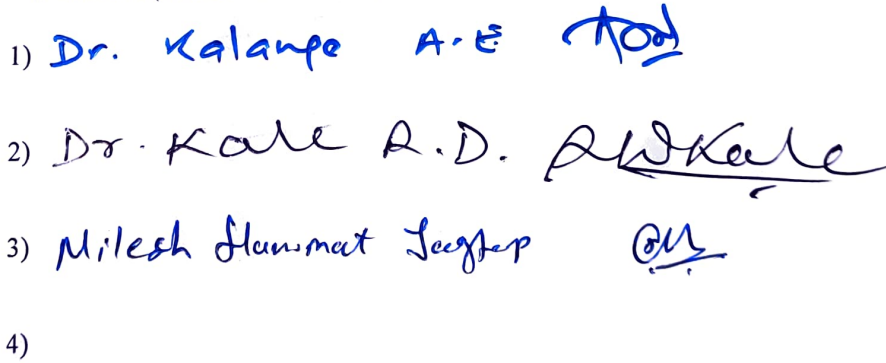 1) Dr. Kalange A.E
2) Dr. Kale R.D. RDKale
3) Nilesh Hanumat Jagtap
4)